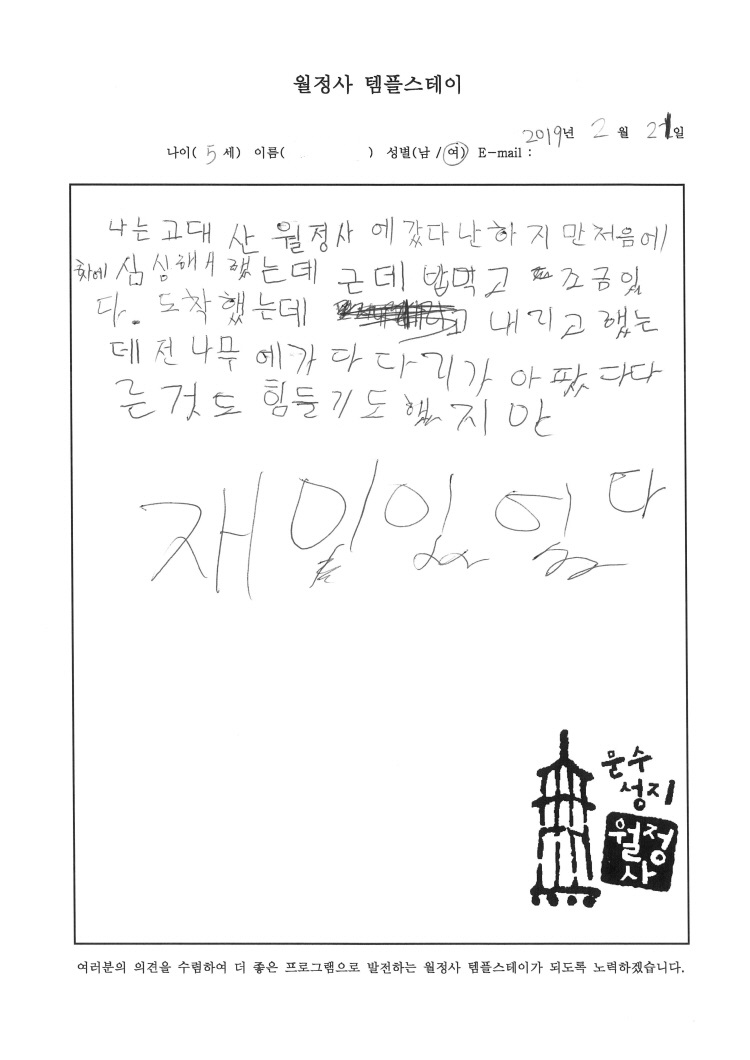 월정사 템플스테이
2019년 2월 21일
나이( 5 세) 이름( ) 성별(남 / 여) E-mail :
나는 고대 산 월정사 에 갔다 난 하 지 만 처음에
차에 심심해 했는데 근데 밥먹고 조금있
다. 도착했는데 내리고 했는
데 전나무 에가 다 다리가 아팠다다
른것도 힘들기도했지만
재밌있었다
문수
성지
월정
사
여러분의 의견을 수렴하여 더 좋은 프로그램으로 발전하는 월정사 템플스테이가 되도록 노력하겠습니다.